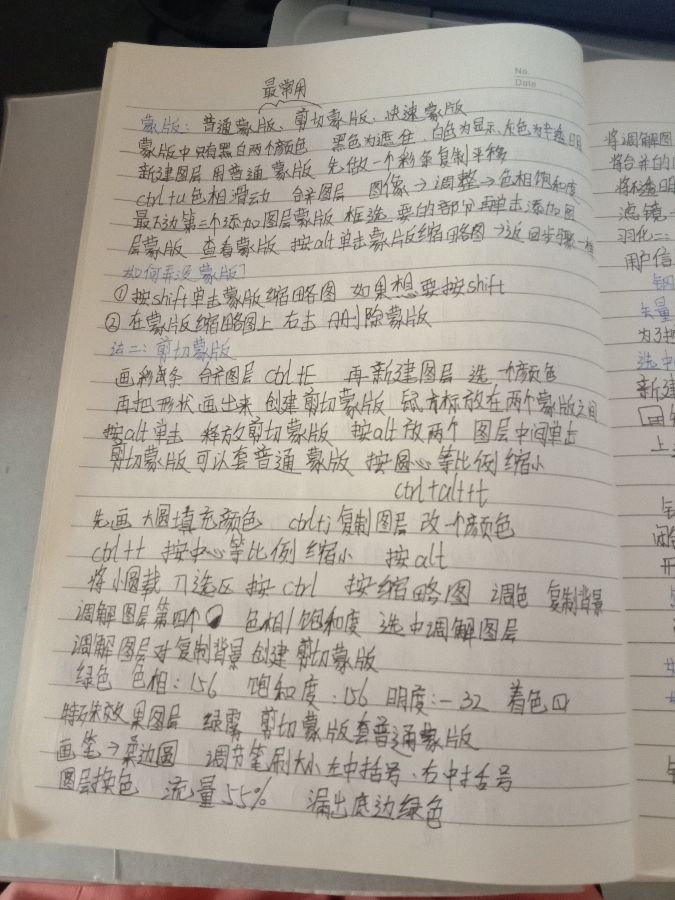 No.
Date
最常用
蒙版：普通蒙版、剪切蒙版、快速蒙版
蒙版中只有黑白两个颜色 黑色为遮住 白色为显示、灰色为半透明
新建图层 用普通蒙版 先做一个彩条复制平移
ctrl+u色相滑动 合并图层 图像→调整→色相饱和度
最下边第三个添加图层蒙版 框选 要的部分再单击添加图
层蒙版 查看蒙版 按alt单击蒙版缩略图→返回步骤一样
如何弃没蒙版？
①按shift单击蒙版缩略图 如果想要按shift
②在蒙版缩略图上 右击 删除蒙版
法二：剪切蒙版
画彩条 合并图层 ctrl+E 再新建图层 选一个颜色
再把形状画出来 创建剪切蒙版 鼠标放在两个蒙版之间
按alt单击 释放剪切蒙版 按alt放两个图层中间单击
剪切蒙版可以套普通蒙版 按圆心等比例缩小
ctrl+alt+t
先画大圆填充颜色 ctrl+j复制图层 改一个颜色
ctrl+t 按中心等比例缩小 按alt
将小圆载入选区 按ctrl 按缩略图 调色 复制背景
调解图层第四个 色相/饱和度 选中调解图层
调解图层对复制背景创建剪切蒙版
绿色 色相：156 饱和度：156 明度：-32 着色
特殊效果图层 绿雾 剪切蒙版套普通蒙版
画笔→柔边圆 调节笔刷大小左中括号、右中括号
图层换色 流量55% 漏出底边绿色
将调解图
滤镜一
羽化二：
用户信
矢量
选中
新建